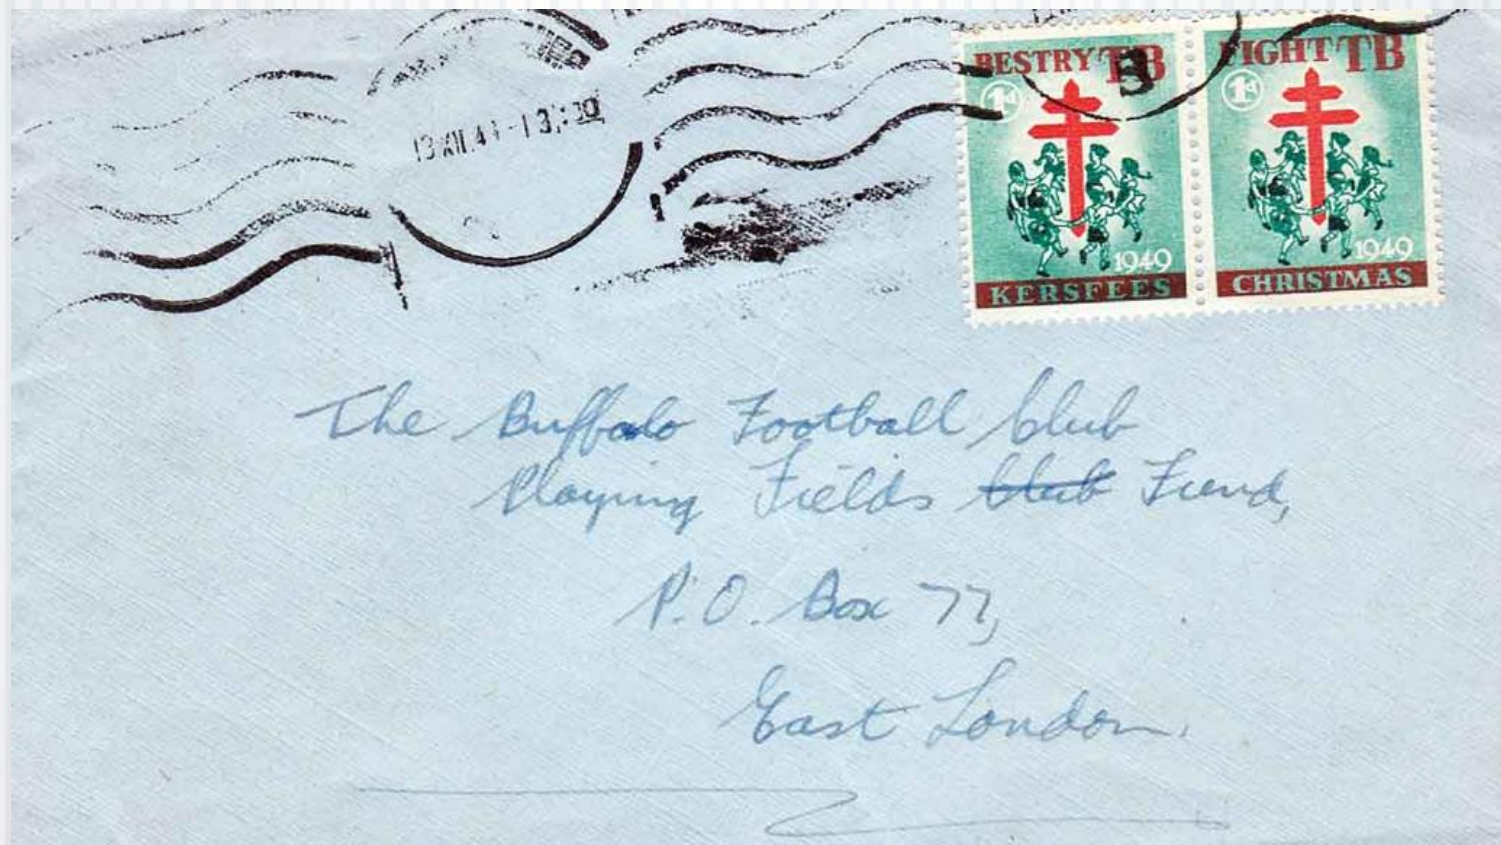 BESTRY TB
1d
1949
KERSFEES
FIGHT TB
1d
1949
CHRISTMAS
The Buffalo Football Club
Playing Fields Club Fund,
P.O. Box 77,
East London.